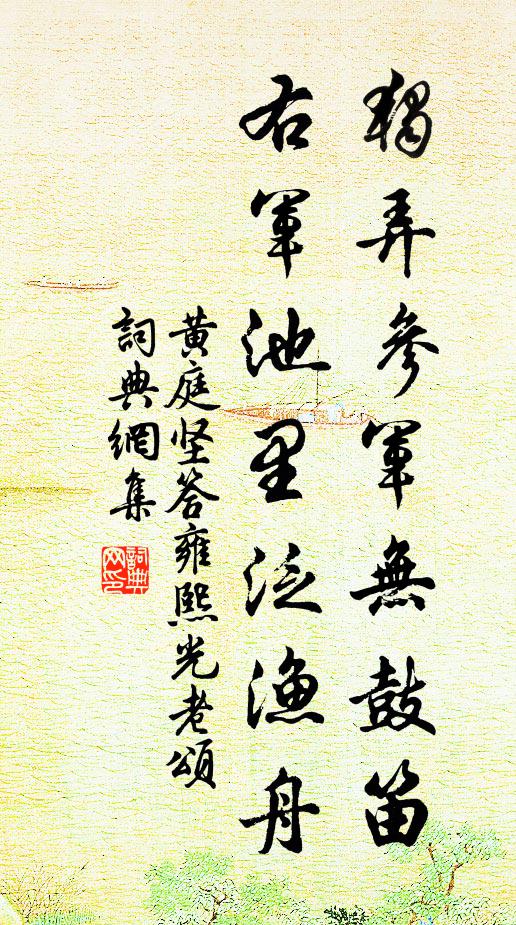 獨弄參軍無鼓笛
右軍池里泛漁舟
黄庭坚答雍熙光老頌
詞典網集
詞典网印